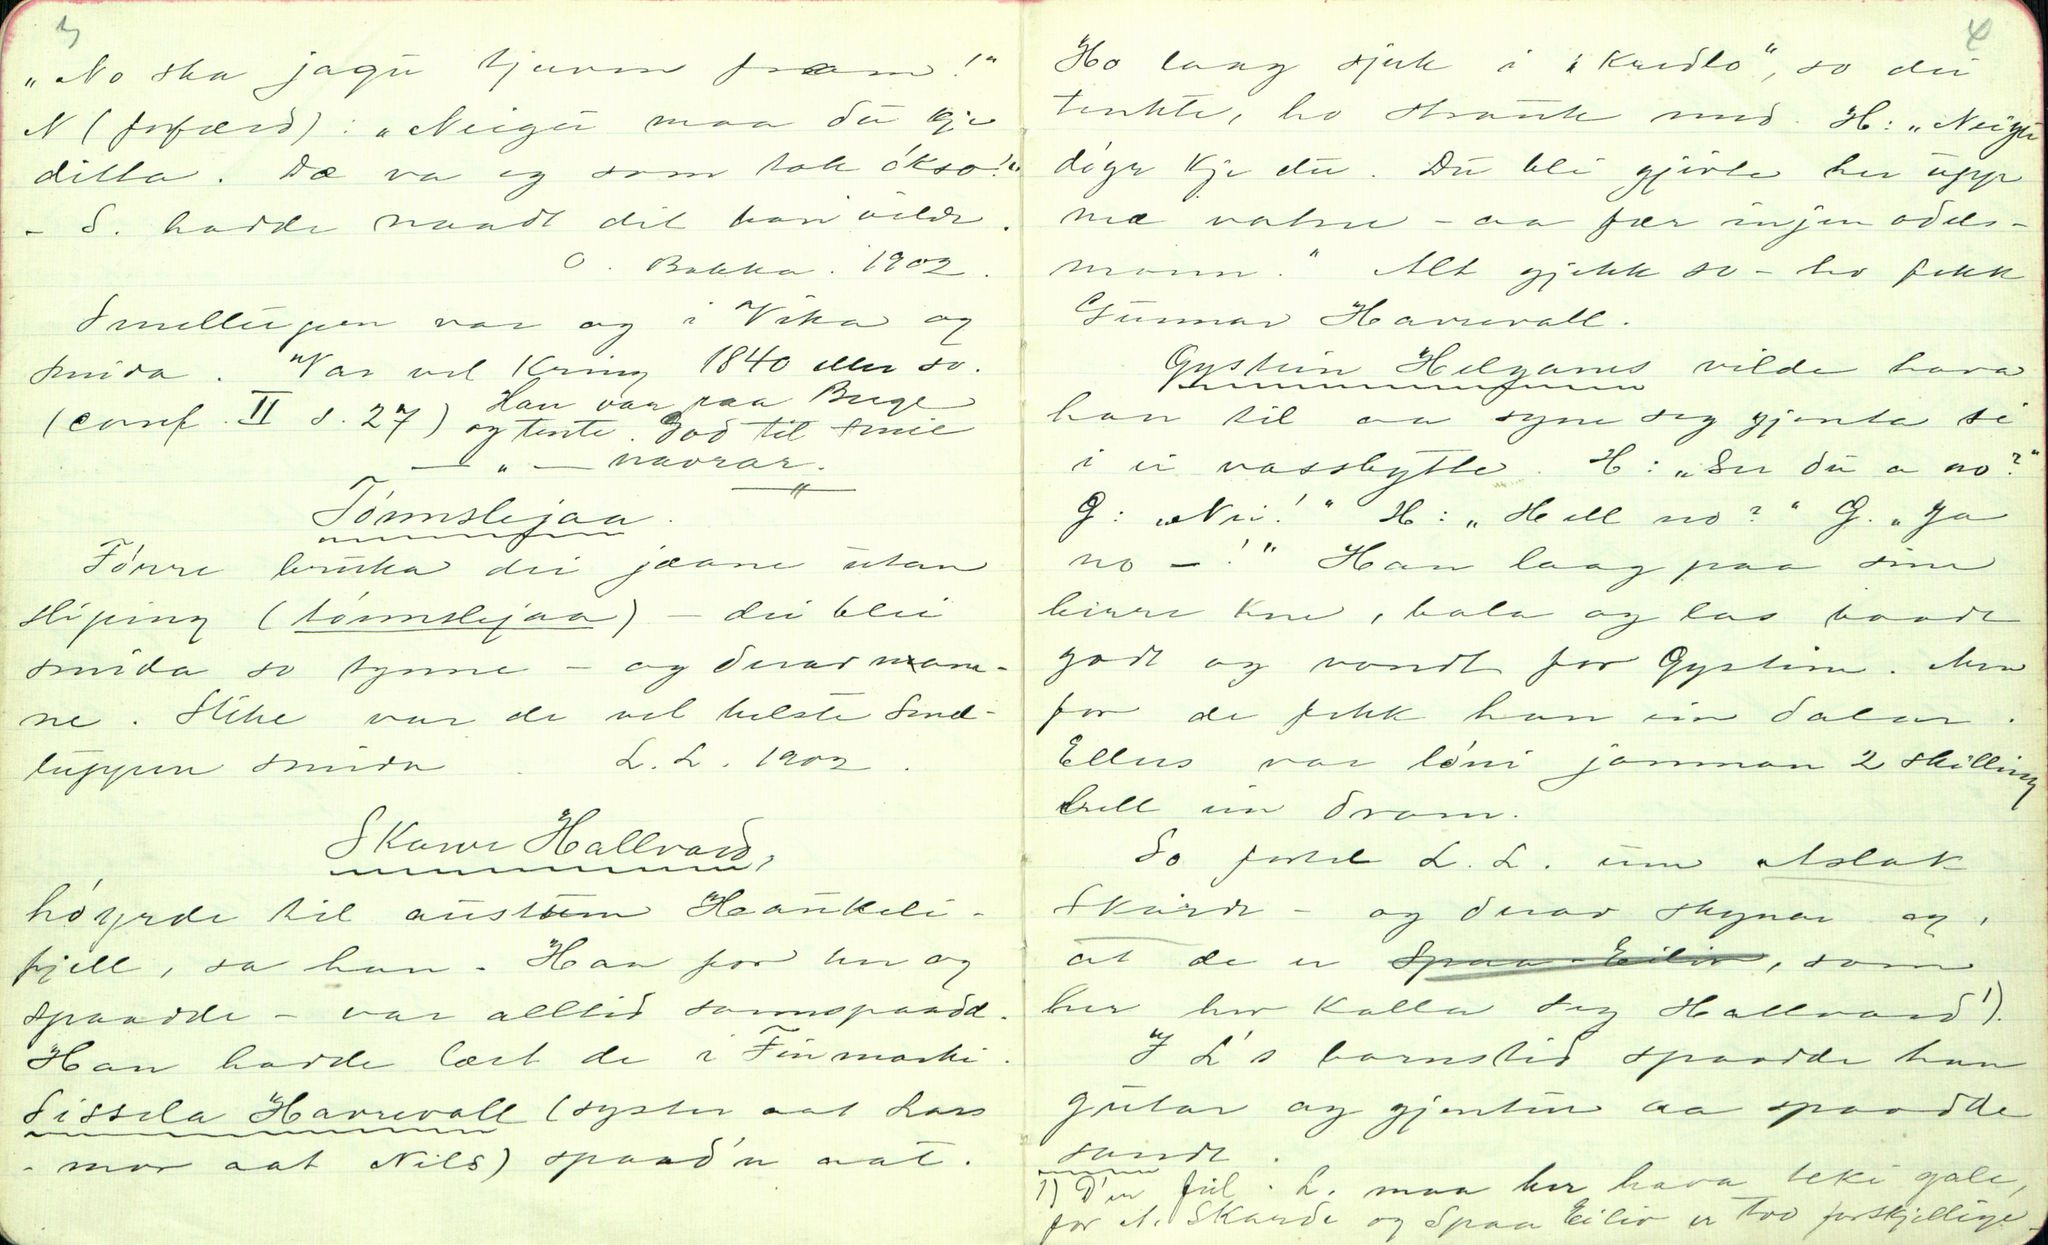 3
"No ska jagu tjuven fram!"
N (forfærd): "Neigu maa du kje
ditta. Dæ va eg som tok ókso!"
- S. hadde naadt dit han vilde.
O. Bakka. 1902.
Smelluppen var og i Vika og
smida. Var vel kring 1840 eller so.
(conf. II s. 27) Han var paa Berge
og tente. God til smie
— " — navrar.
Tónnsljaa.
Fórre bruka dei jaane utan
sliping (tónnsljaa) - dei blei
smida so tynne - og derav namn-
ne. Slike var de vel helste Smel-
luppen smida. L. L. 1902.
Skarve Hallvard,
hóyrde til austum Haukeli-
fjell, sa han. Han for um og
spaadde - var alltid sannspaadd.
Han hadde lært de i Finmarki.
Sissela Havrevoll (syster aat Lars
- mor aat Nils) spaad'n aat.
4
Ho laag sjuk i "Kredlo", so dei
tenkte, ho strauk med. H: "Neigu
dóyr kje du. Du bli gjivle her upp
me vatne - aa fær injen odels-
mann." Alt gjekk so - ho fekk
Gunnar Havrevoll.
Gystein Helganes vilde hava
han til aa syne seg gjenta si
i ei vassbytte. H: "Ser du a no?"
G: "Nei!" H: "Hell no?" G. "Ja
no -!" Han laag paa sine
berre kne, bala og las baade
godt og vondt for Gystein. Men
for de fekk han ein dalar.
Ellers var lóni jamnan 2 skilling
hell ein dram.
So fortel L. L. um Aslak
Skarde - og derav skynar eg,
at de er Spaa-Eiliv, som
her har kalla seg Hallvard 1).
I L's barnstid spaadde han
gutar og gjentur aa spaadde
sandt.
1) D'er feil. L. maa her hava teke gale,
for A. Skarde og Spaa Eiliv er tvo forskjellige.